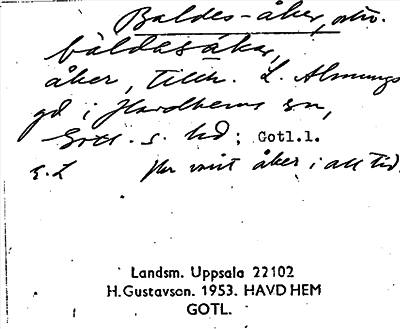 Baldes-åker,
åker, tillh. L. Almungs
gd i Havdhems sn,
Gotl. s. hd; Gotl.l.
E.L Har varit åker i all tid.
Landsm. Uppsala 22102
H.Gustavson. 1953. HAVDHEM
GOTL.